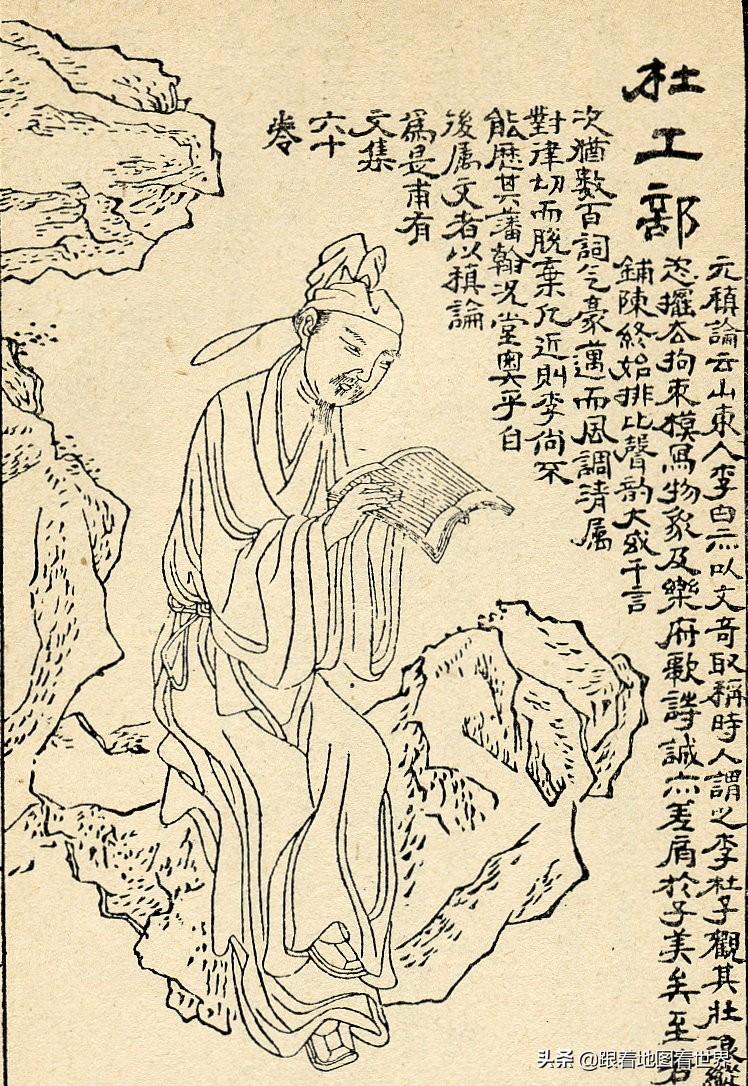 杜工部
元稹論云山東人李白亦以文奇取稱時人謂之李杜予觀其壯浪縱
恣擺去拘束模寫物象及樂府歌詩誠亦差肩於子美矣至若
鋪陳終始排比聲韵大或千言
次猶數百詞气豪邁而風調清属
對律切而脫棄凡近則李尚不
能歷其藩翰况堂奧乎自
後属文者以稹論
爲是甫有
文集
六十
卷
头条 @跟着地图看世界